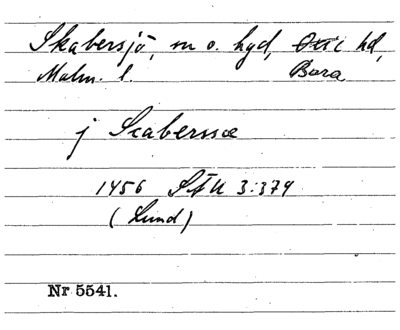 Skabersjö, sn o. hgd, hd,
Malm. l. Bara
j Scabersiæ
1456 3:379
(Lund)
Nr 5541.